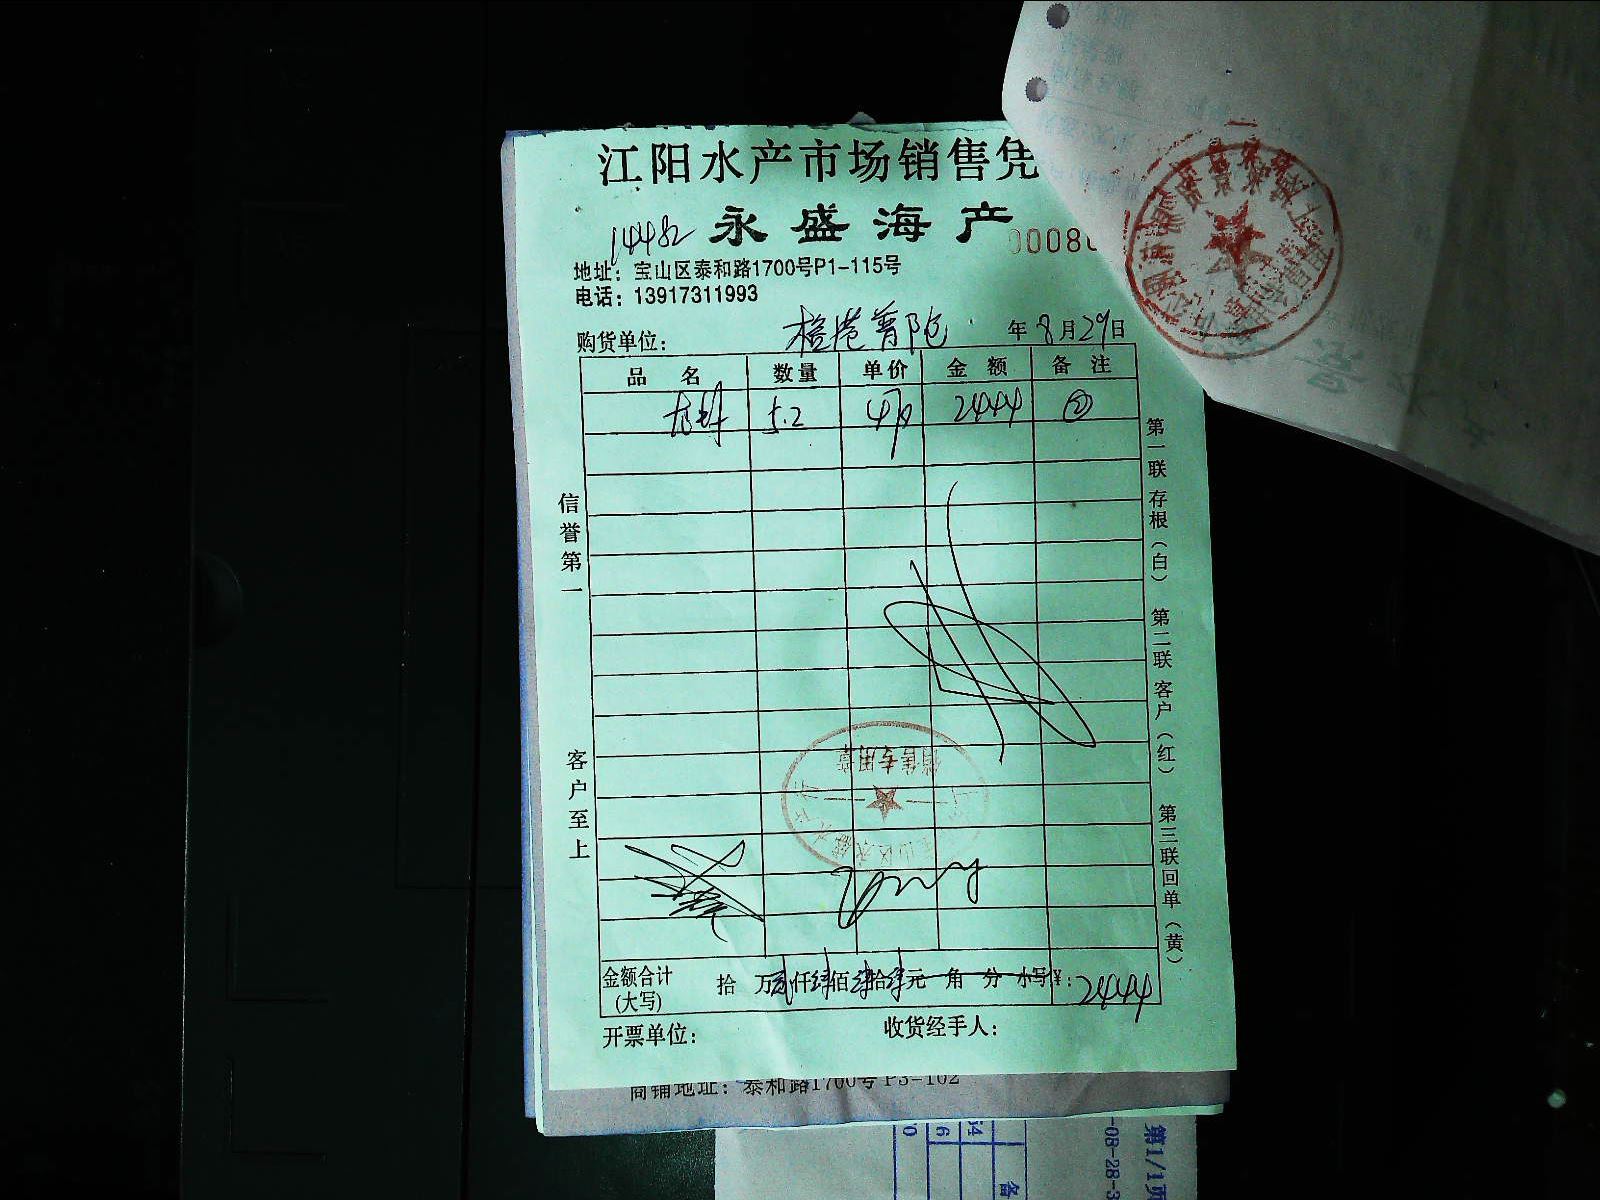 江阳水产市场销售凭
永盛海产
14482
00080
地址：宝山区泰和路1700号P1-115号
电话：13917311993
购货单位： 普陀 年8月29日
品 名 数量 单价 金 额 备 注
5.2 2444 ②
信誉第一
客户至上
第一联 存根（白） 第二联 客户（红） 第三联 回单（黄）
销售专用章
金额合计（大写） 拾 万贰仟肆佰肆拾肆元 角 分 小写¥：2444
开票单位： 收货经手人：
商铺地址：泰和路1700号P3-102
第1/1页
-08-28-3